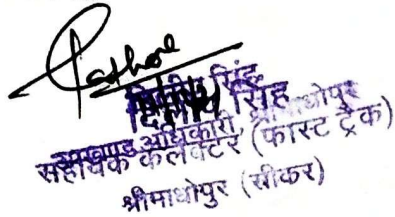 Rathore
सिंह
सिंह
उपखण्ड अधिकारी, श्रीमाधोपुर
सहायक कलेक्टर (फास्ट ट्रैक)
श्रीमाधोपुर (सीकर)